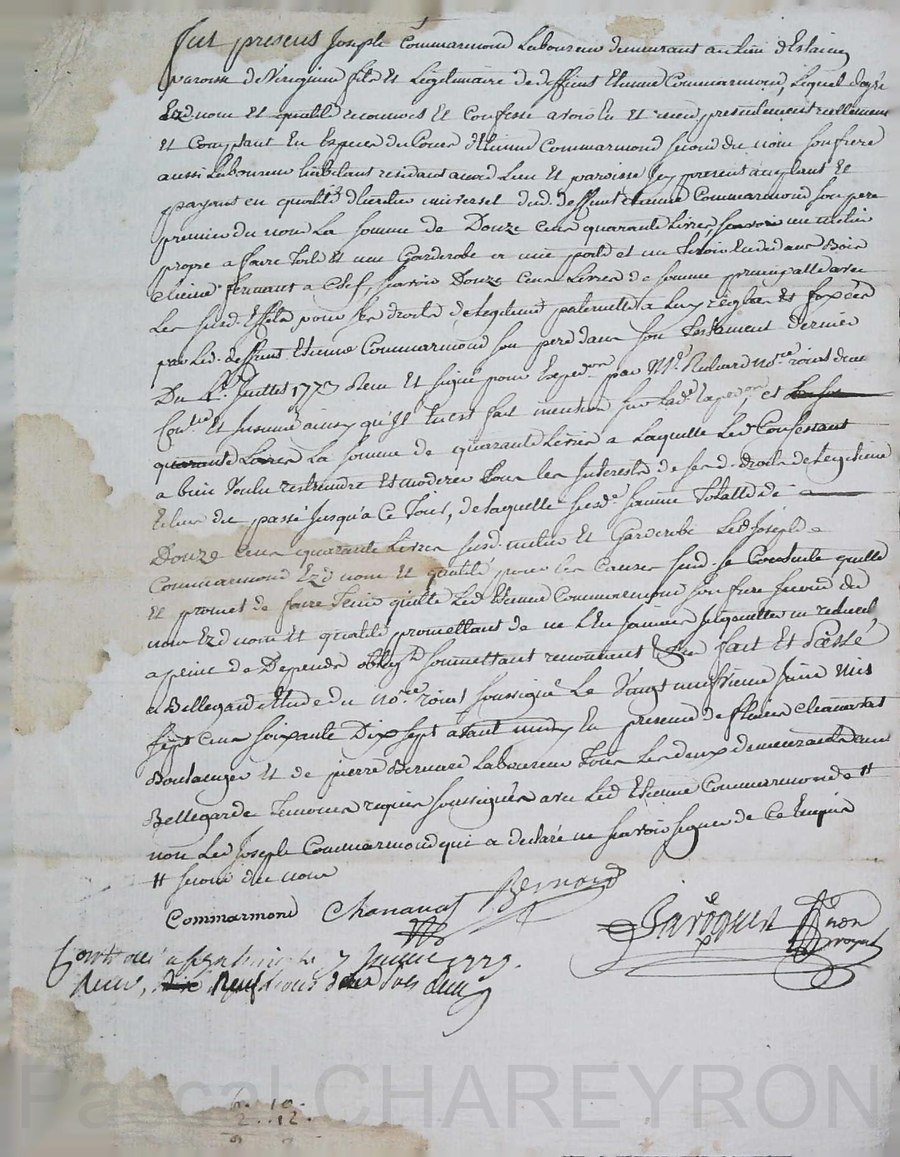 fut présens Joseph Commarmond Laboureur demeurant au lieu d'Estaing
paroisse de Virigneux fils et Legitimaire de deffunt Etienne Commarmond, Lequel de gré
Ezd nom et qualité reconnois et Confesse avoir Eu et receu présentement reellement
et Comptant En Especes du Cours d'Etienne Commarmond second du nom son frere
aussi Laboureur habitant residant aud Lieu et paroisse icy present acceptant et
payant en qualité d'heritier universel dud. deffunt Etienne Commarmond son pere
premier du nom La somme de Douze Cens quarante Livres, scavoir un metier
propre a faire toile et une Garderobe a une porte et un tiroir En dedans Bois
Chêne fermant a Clef, scavoir Douze Cens Livres de somme principalle avec
Les susd. Effets pour ses droits de Legitime paternelle a Luy reglés et fixés
par Led. deffunt Etienne Commarmond son pere dans son Testament dernier
Du Juillet 1773 receu et signé pour Exped.on par M.e Richard no.re roial
Con.lé et Insinué ainsy qu'Il En est fait mention sur Lad.e Exped.on et
quarante Livres La somme de quarante Livres a Laquelle Led Confessant
a bien voulu restraindre et moderer tous les Interests de sesd. droits de Legitime
Echus du passé Jusqu'a Ce Jour, de laquelle susd.e somme Totalle de
Douze Cens quarante Livres susd. metier et Garderobe Led Joseph
Commarmond Ezd nom et qualité pour les Causes susd. se Contente quitte
et promet de faire tenir quitte Led Etienne Commarmond son frere second du
nom Ezd nom et qualité promettant de ne L'En Jamais Inquietter ni rechercher
a peine de Depends oblig.t soummettant renoncent &c fait et Passé
a Bellegarde Etude du no.re roial soussigné Le Vingt neufvieme Juin Mil
sept Cens soixante Dix sept avant midy En présence de Chanavat
Boulanger et de pierre Bernard Laboureur Tous Les deux demeurants aud
Bellegarde Temoins requis soussignés avec Led Etienne Commarmond #
non Led Joseph Commarmond qui a declaré ne scavoir signer de Ce Enquis
# second du nom
Commarmond Chanavat Bernard
Controllé a le 7 Juillet
Receu, neuf Livres deux sols
Pascal CHAREYRON